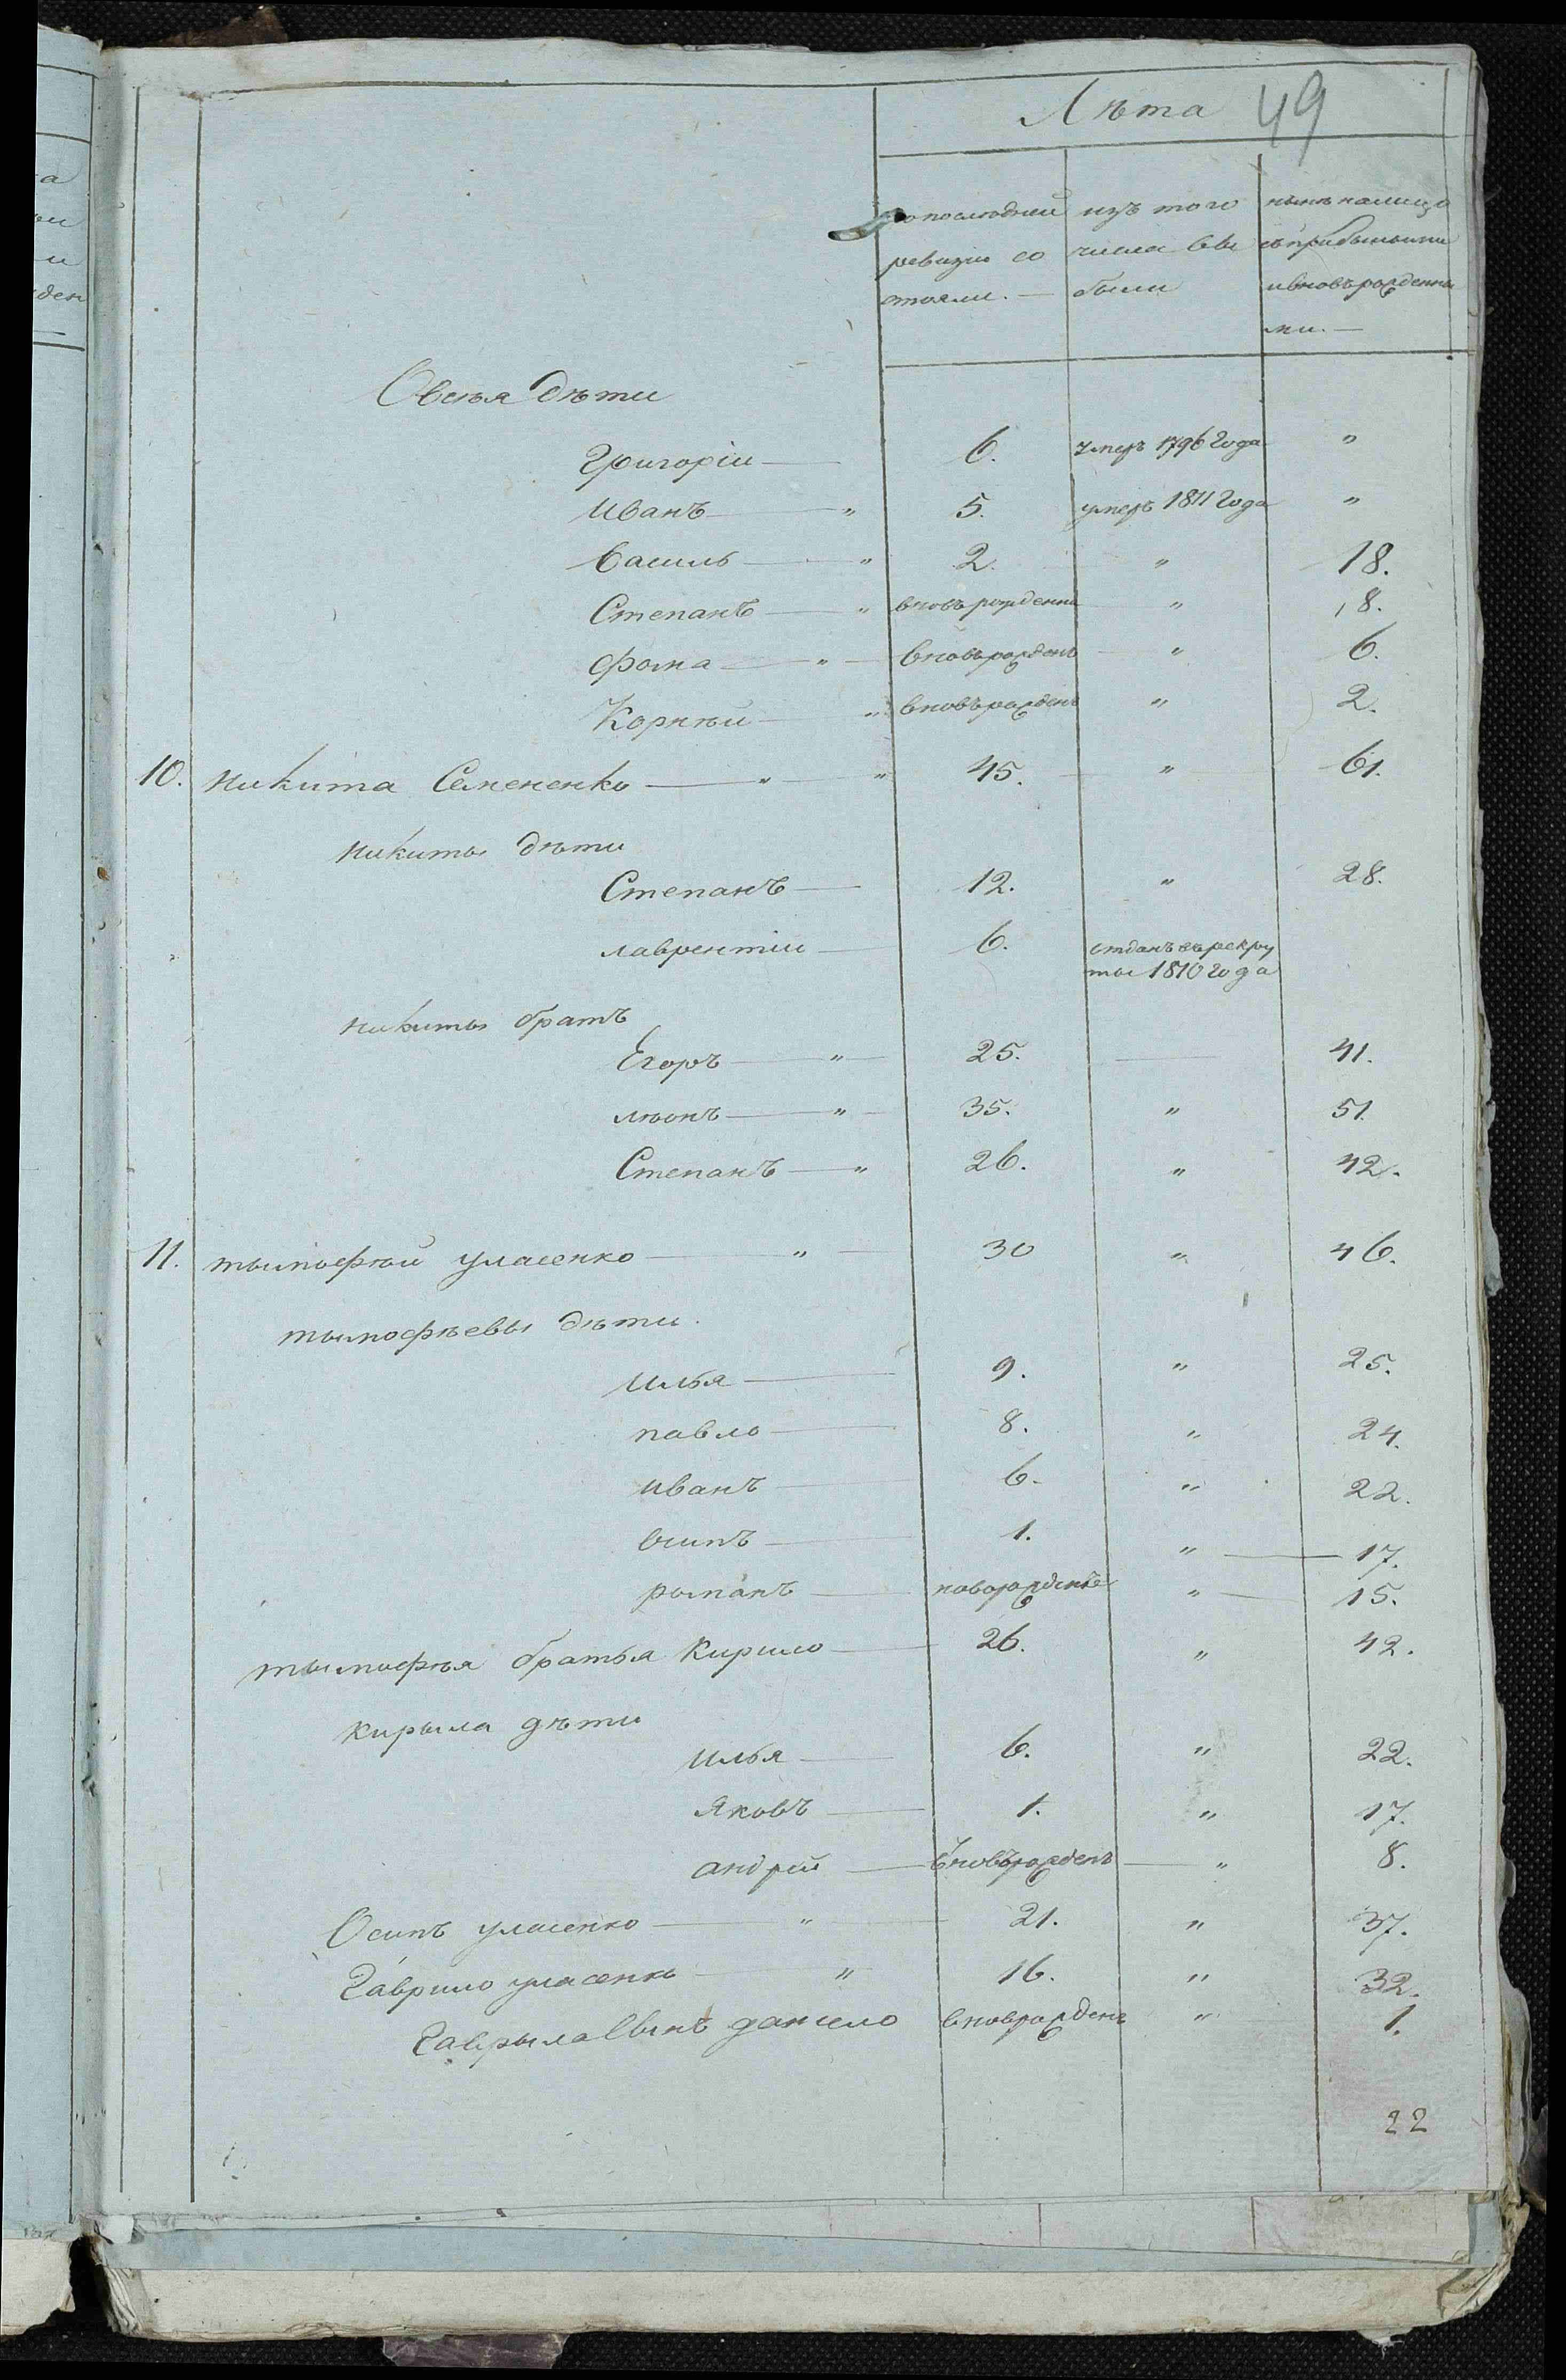 Лѣта 49
по последней
ревизіи со
стояли.
изъ того
числа вы
были
нынѣ налицо
съ прибылыми
и вновь рожденны
ми.
Овсѣя дѣти
Григоріи 6. умеръ 1796 года "
Иванъ " 5. умеръ 1811 года "
Василь " 2. " 18.
Степанъ " вновь рожденны " 8.
Фома " вновь рожденъ " 6.
Корнѣй " вновь рожденъ " 2.
10. Никита Семененко " " 45. " 61.
Никиты дѣти
Степанъ 12. " 28.
лаврентіи 6. отданъ въ рекру
ты 1810 года
Никиты братъ
Егоръ " 25. 41.
лѣонъ " 35. " 51.
Степанъ " 26. " 42.
11. тымофѣй уласенко " 30 " 46.
тымофѣевы дѣти.
Илья 9. " 25.
павло 8. " 24.
иванъ 6. " 22.
осипъ 1. " 17.
рыманъ новорожденъ " 15.
тымофѣя братья Кирило 26. " 42.
кирыла дѣти
Илья 6. " 22.
Яковъ 1. " 17.
андрей вновърожденъ " 8.
Осипъ уласенко " 21. " 37.
Гаврило уласенко " 16. " 32.
Гаврыла сынъ данило вноврожденъ " 1.
22